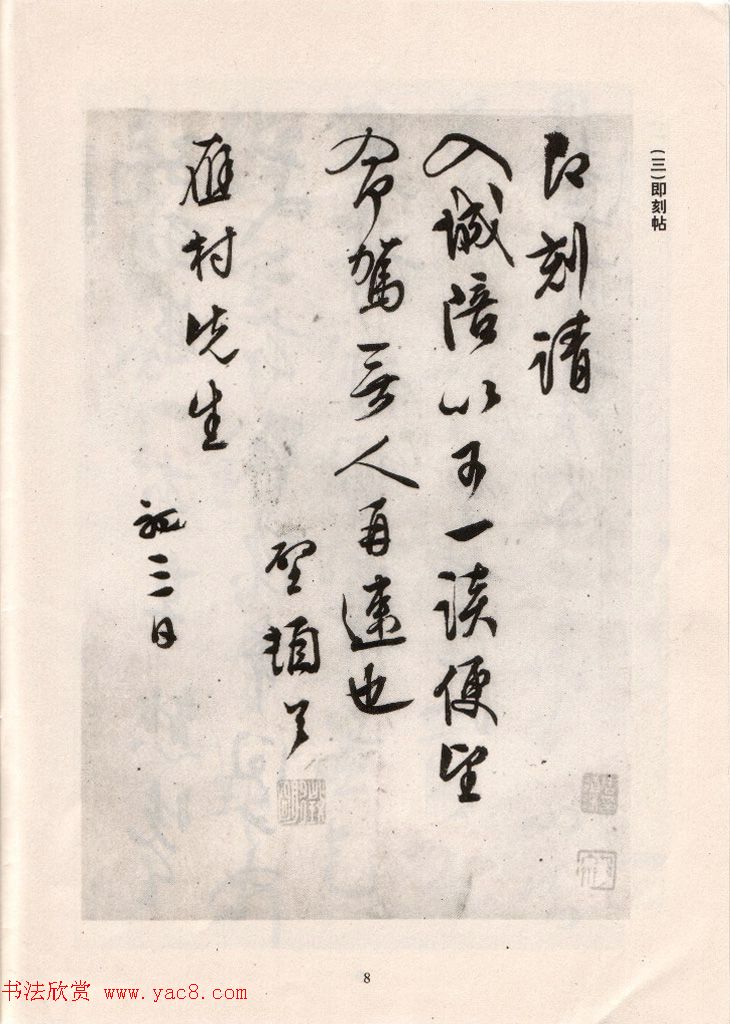 (三)即刻帖
即刻请
入城陪以可一谈便望
命驾无人再速也
聖顿首
雁村先生
初三日
8
书法欣赏 www.yac8.com